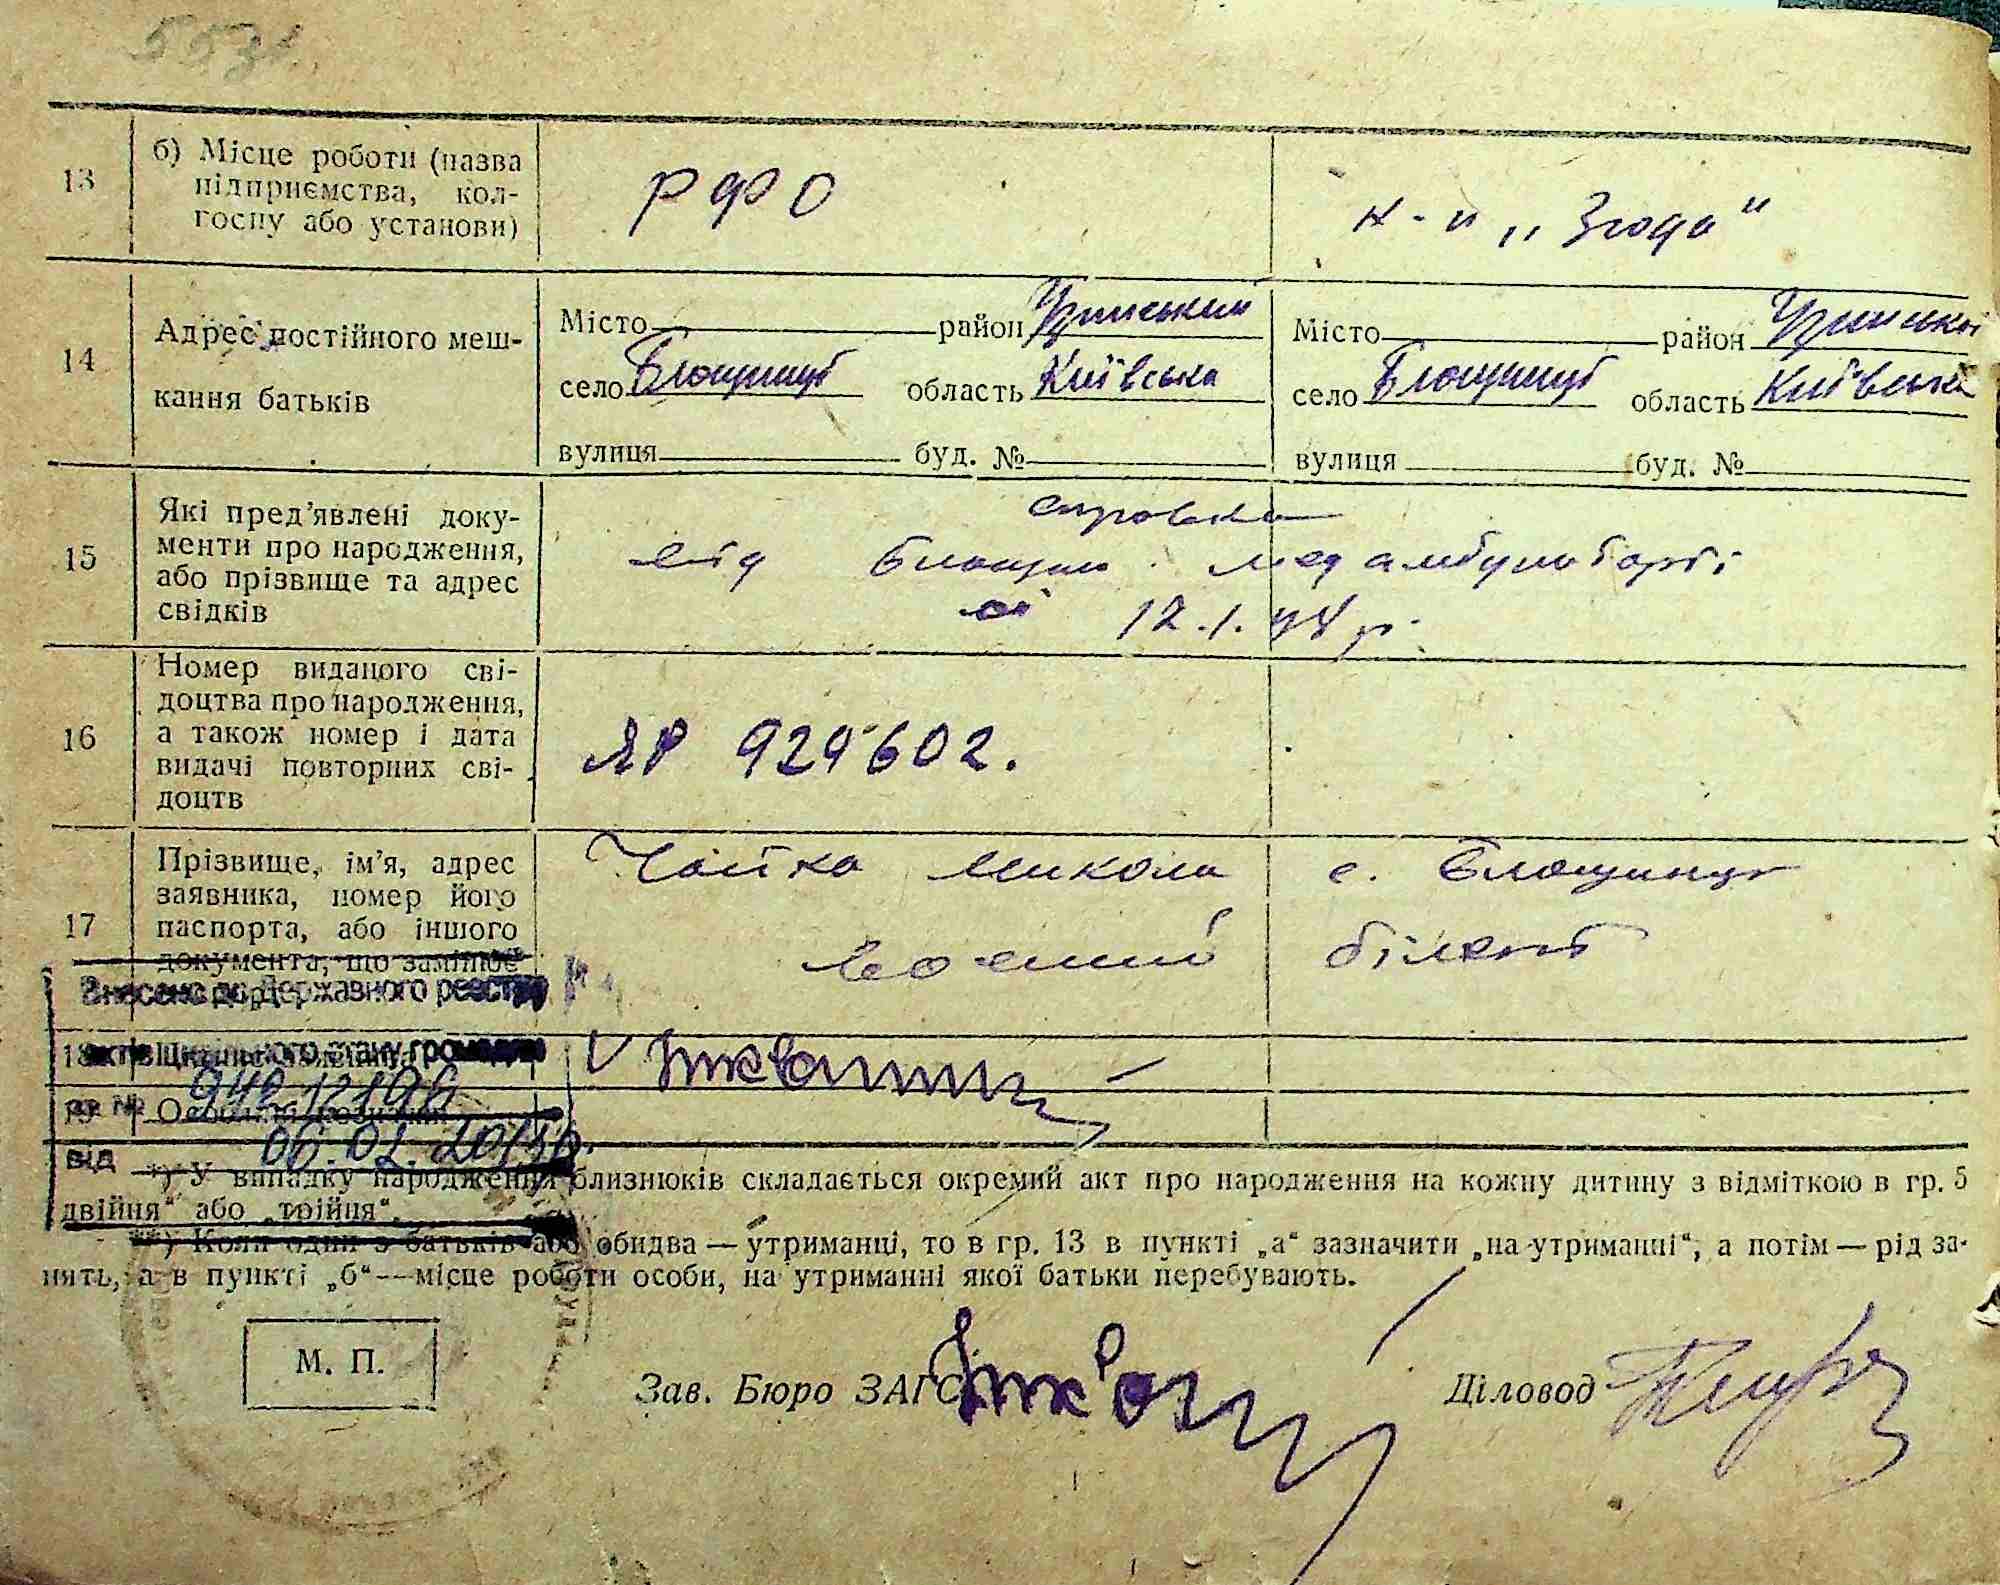 553
13
б) Місце роботи (назва
підприємства, кол-
госпу або установи)
РФО
к-п „Згода"
14
Адрес постійного меш-
кання батьків
Місто район
село Блощинці область Київська
вулиця буд. №
Місто район
село Блощинці область Київська
вулиця буд. №
15
Які пред'явлені доку-
менти про народження,
або прізвище та адрес
свідків
справка
від Блощин. мед амбулаторії
12.1.44 р.
16
Номер виданого сві-
доцтва про народження,
а також номер і дата
видачі повторних сві-
доцтв
ЯР 929602.
17
Прізвище, ім'я, адрес
заявника, номер його
паспорта, або іншого
документа, що замінює
Чайка Микола с. Блощинці
воєнний білет
Внесено до Державного реєстру
актів цивільного стану громадян
18
19
за №
від 06.02.20
*) У випадку народження близнюків складається окремий акт про народження на кожну дитину з відміткою в гр. 5
двійня" або „трійня".
**) Коли один з батьків або обидва — утриманці, то в гр. 13 в пункті „а" зазначити „на утриманні", а потім — рід за-
нять, а в пункті „б" — місце роботи особи, на утриманні якої батьки перебувають.
М. П.
Зав. Бюро ЗАГС
Діловод